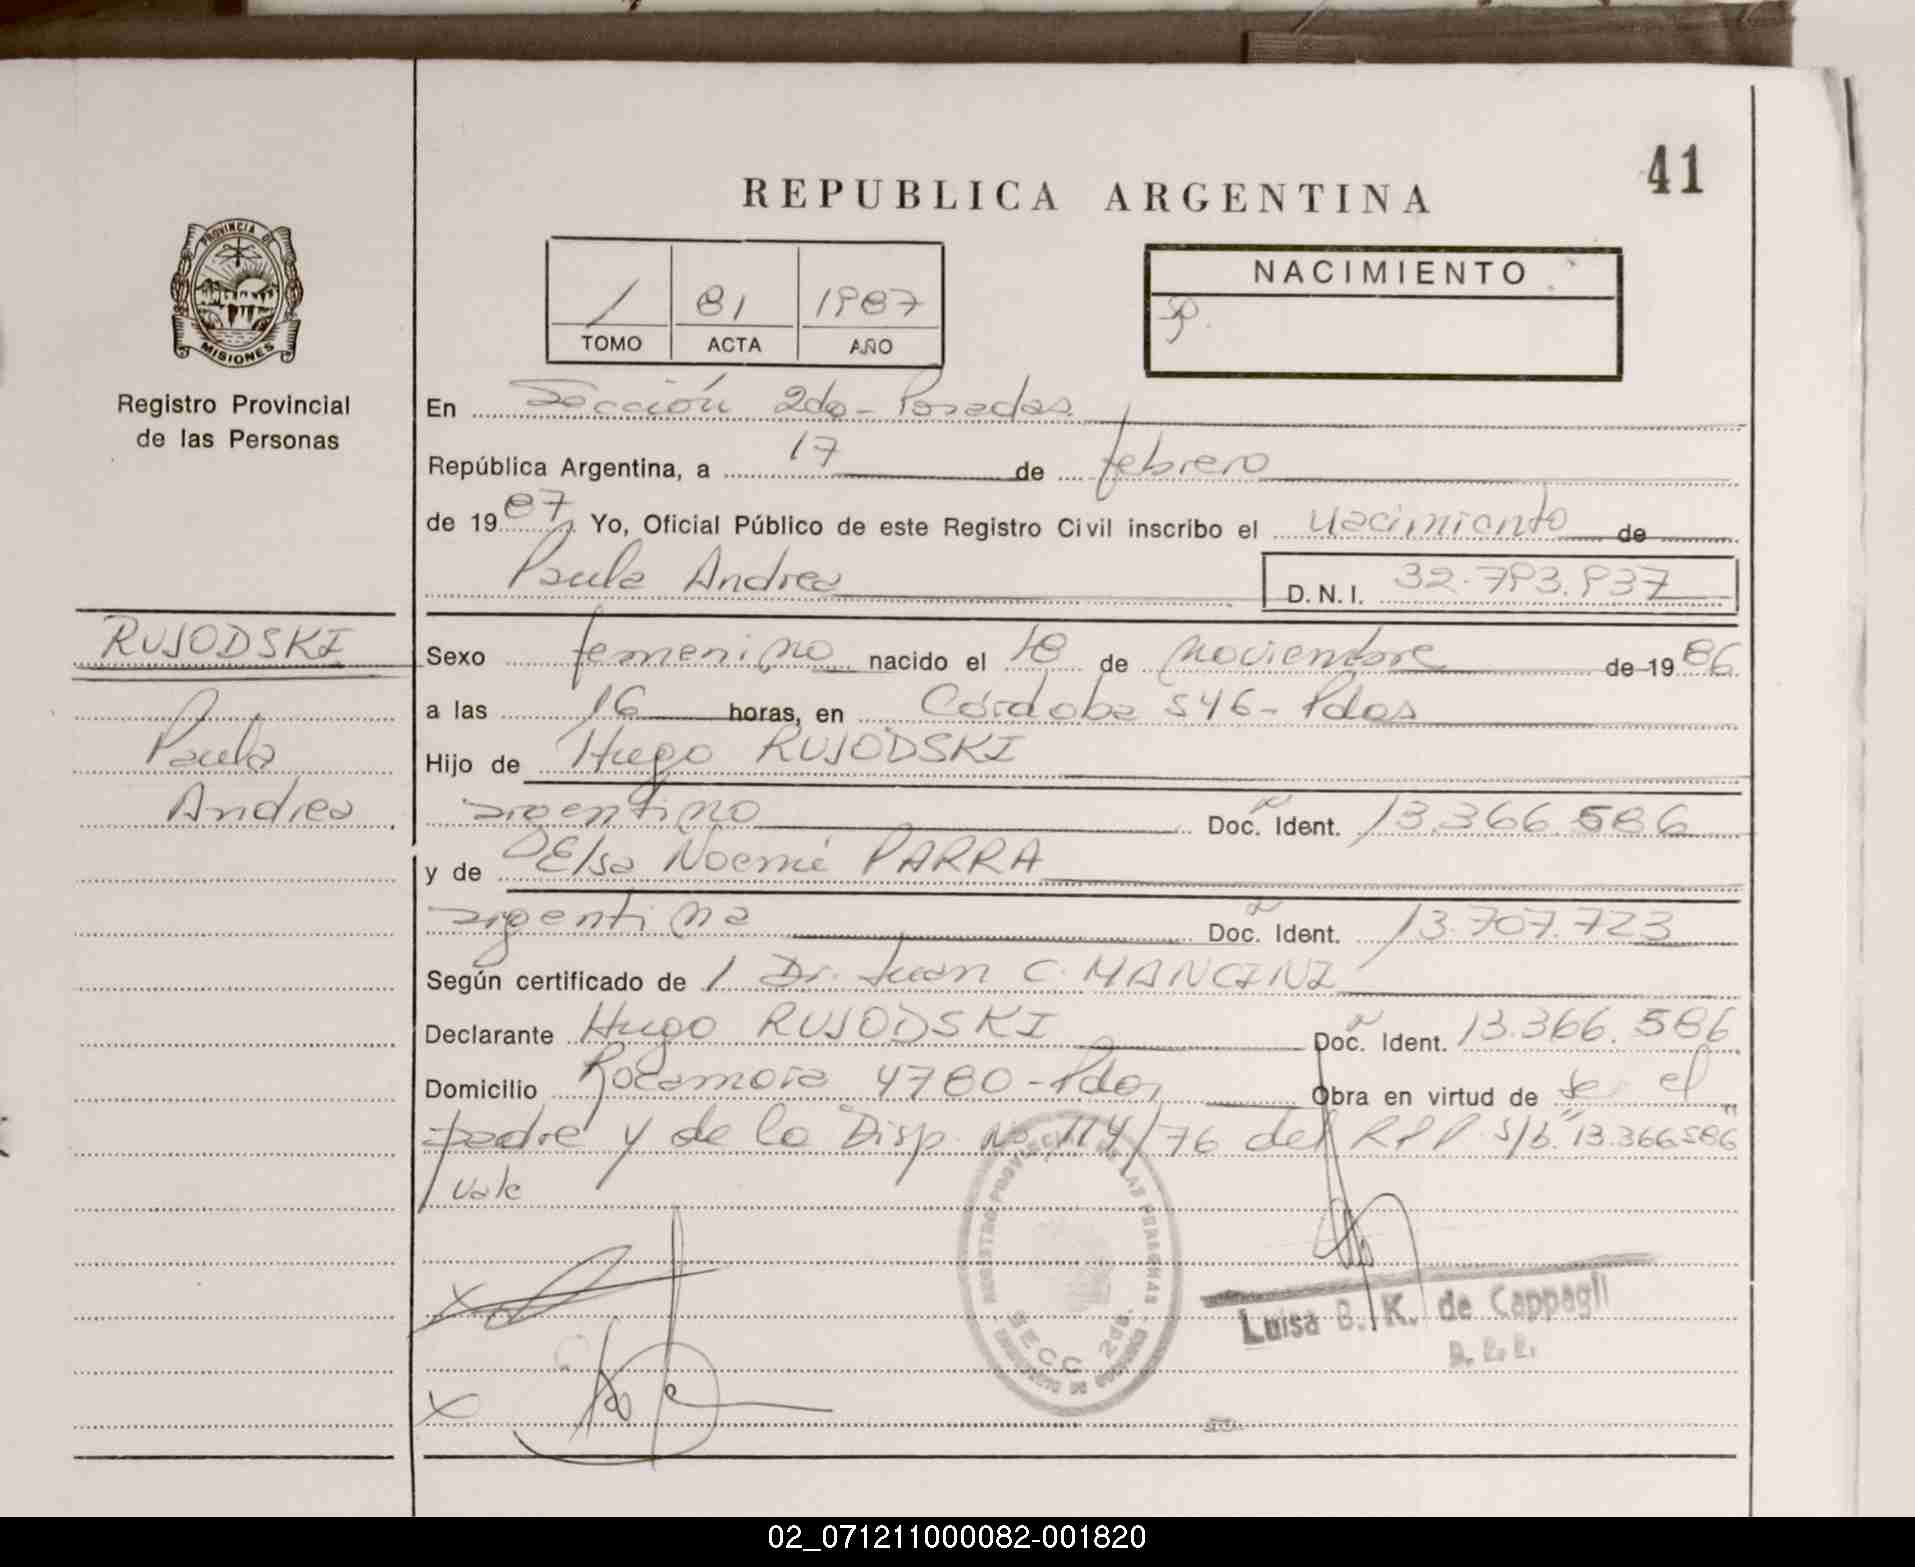 41
REPUBLICA ARGENTINA
PROVINCIA DE
MISIONES
Registro Provincial
de las Personas
1 81 1987
TOMO ACTA AÑO
NACIMIENTO
En Sección 2da - Posadas
República Argentina, a 17 de febrero
de 1987 Yo, Oficial Público de este Registro Civil inscribo el nacimiento de
Paula Andrea D.N.I. 32.793.937
RUJODSKI
Paula
Andrea
Sexo femenino nacido el 18 de noviembre de 1986
a las 16 horas, en Córdoba 546 - Pdas
Hijo de Hugo RUJODSKI
argentino Doc. Ident. 13.366.586
y de Elsa Noemí PARRA
argentina Doc. Ident. 13.707.723
Según certificado de 1 Dr. Juan C. MANCINI
Declarante Hugo RUJODSKI Doc. Ident. 13.366.586
Domicilio Rocamora 4780 - Pdas Obra en virtud de ser el
padre y de la Disp. No 114/76 del RPP s/b. "13.366.586"
Vale
REGISTRO PROVINCIAL DE LAS PERSONAS
SECC. 2da.
Luisa B. K. de Cappagli
02_071211000082-001820